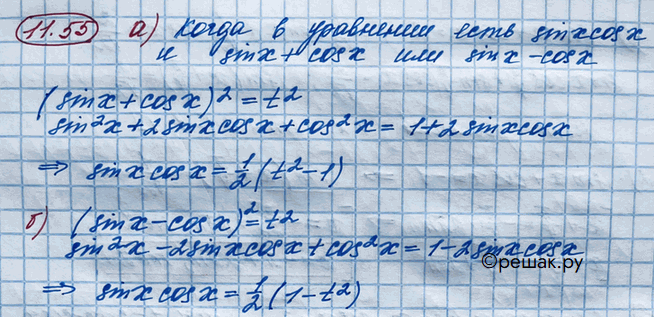 11.55 а) Когда в уравнении есть sinxcosx
и sinx+cosx или sinx-cosx
(sinx+cosx)²=t²
sin²x+2sinxcosx+cos²x=1+2sinxcosx
⇒ sinxcosx=½(t²-1)
б) (sinx-cosx)²=t²
sin²x-2sinxcosx+cos²x=1-2sinxcosx
©решак.ру
⇒ sinxcosx=½(1-t²)